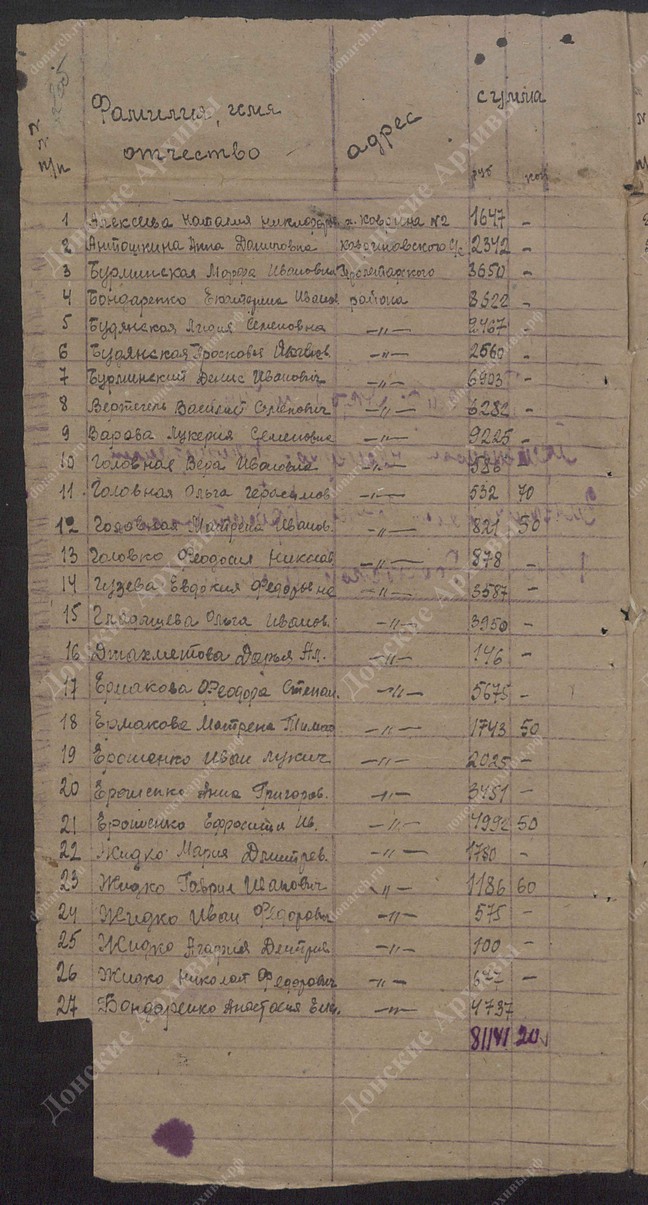 №
№
п/п
Фамилия, имя
отчество
адрес
сумма
руб коп
1 Алексеева Наталия х. Ковагина №2 1647 -
2 Антошкина Анна Даниловна 2342 -
3 Бурминская Ивановна Пролетарского 3650 -
4 Бондаренко Екатерина Иванов района 3522 -
5 Будянская Лидия Семеновна -"- 2467 -
6 Будянская Просковья -"- 2560 -
7 Бурминский Денис Иванович -"- 6903 -
8 Вертегель Василий Семенович -"- 6282 -
9 Варава Лукерия Семеновна -"- 9225 -
10 Головная Вера Ивановна -"- 586 -
11 Головная Ольга Герасимов -"- 532 70
12 Головная Матрена Иванов. -"- 821 50
13 Головко Феодосия -"- 878 -
14 Гузева Евдокия Федоровна -"- 3587 -
15 Ольга Иванов. -"- 3950 -
16 Джахметова Дарья Ал. -"- 146 -
17 Ермакова Феодора Степан. -"- 5675 -
18 Ермакова Матрена -"- 1743 50
19 Ерошенко Иван Лукич -"- 2025 -
20 Ерошенко Анна Григоров. -"- 3451 -
21 Ерошенко Ефросиния Ив. -"- 4992 50
22 Жидко Мария Дмитрев. -"- 1780 -
23 Жидко Гаврил Иванович -"- 1186 60
24 Жидко Иван Федорович -"- 575 -
25 Жидко Агафия Дмитрив -"- 100 -
26 Жидко Николай Федорович -"- -
27 Бондаренко Анастасия -"- 4737
81141 20